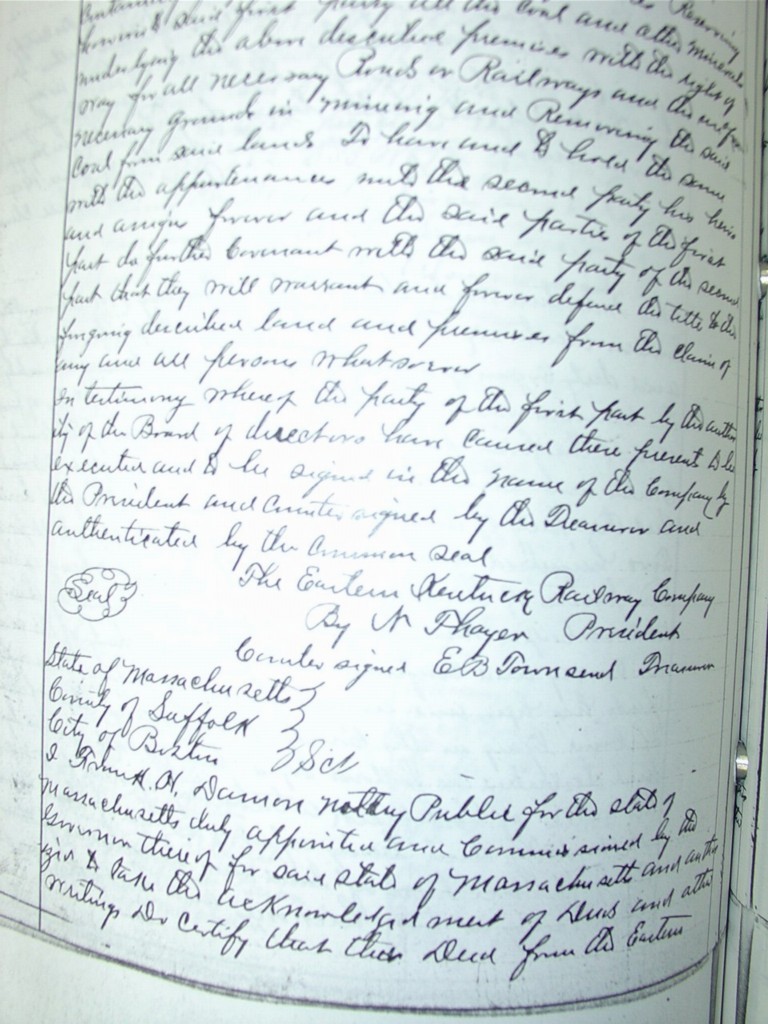 said first party all the Coal and other minerals
underlying the above described premises with the right of
way for all necessary Roads or Railways and the use of
necessary grounds in mining and Removing the said
Coal from said lands To have and to hold the same
with the appurtenances unto the second party his heirs
and assigns forever and the said parties of the first
part do further Covenant with the said party of the second
part that they will warrant and forever defend the title to the
foregoing described land and premises from the claim of
any and all persons whatsoever
In testimony whereof the party of the first part by the author
ity of the Board of directors have caused these presents to be
executed and to be signed in the name of the Company by
the President and Counter signed by the Treasurer and
authenticated by the Common seal
Seal
The Eastern Kentucky Railway Company
By N Thayer President
Counter signed E B Townsend Treasurer
State of Massachusetts
County of Suffolk
City of Boston } Sct
I H. Damon notary Public for the state of
Massachusetts duly appointed and Commissioned by the
Governor thereof for said state of Massachusetts and
to take the acknowledgment of Deeds and other
writings Do Certify that this Deed from the Eastern